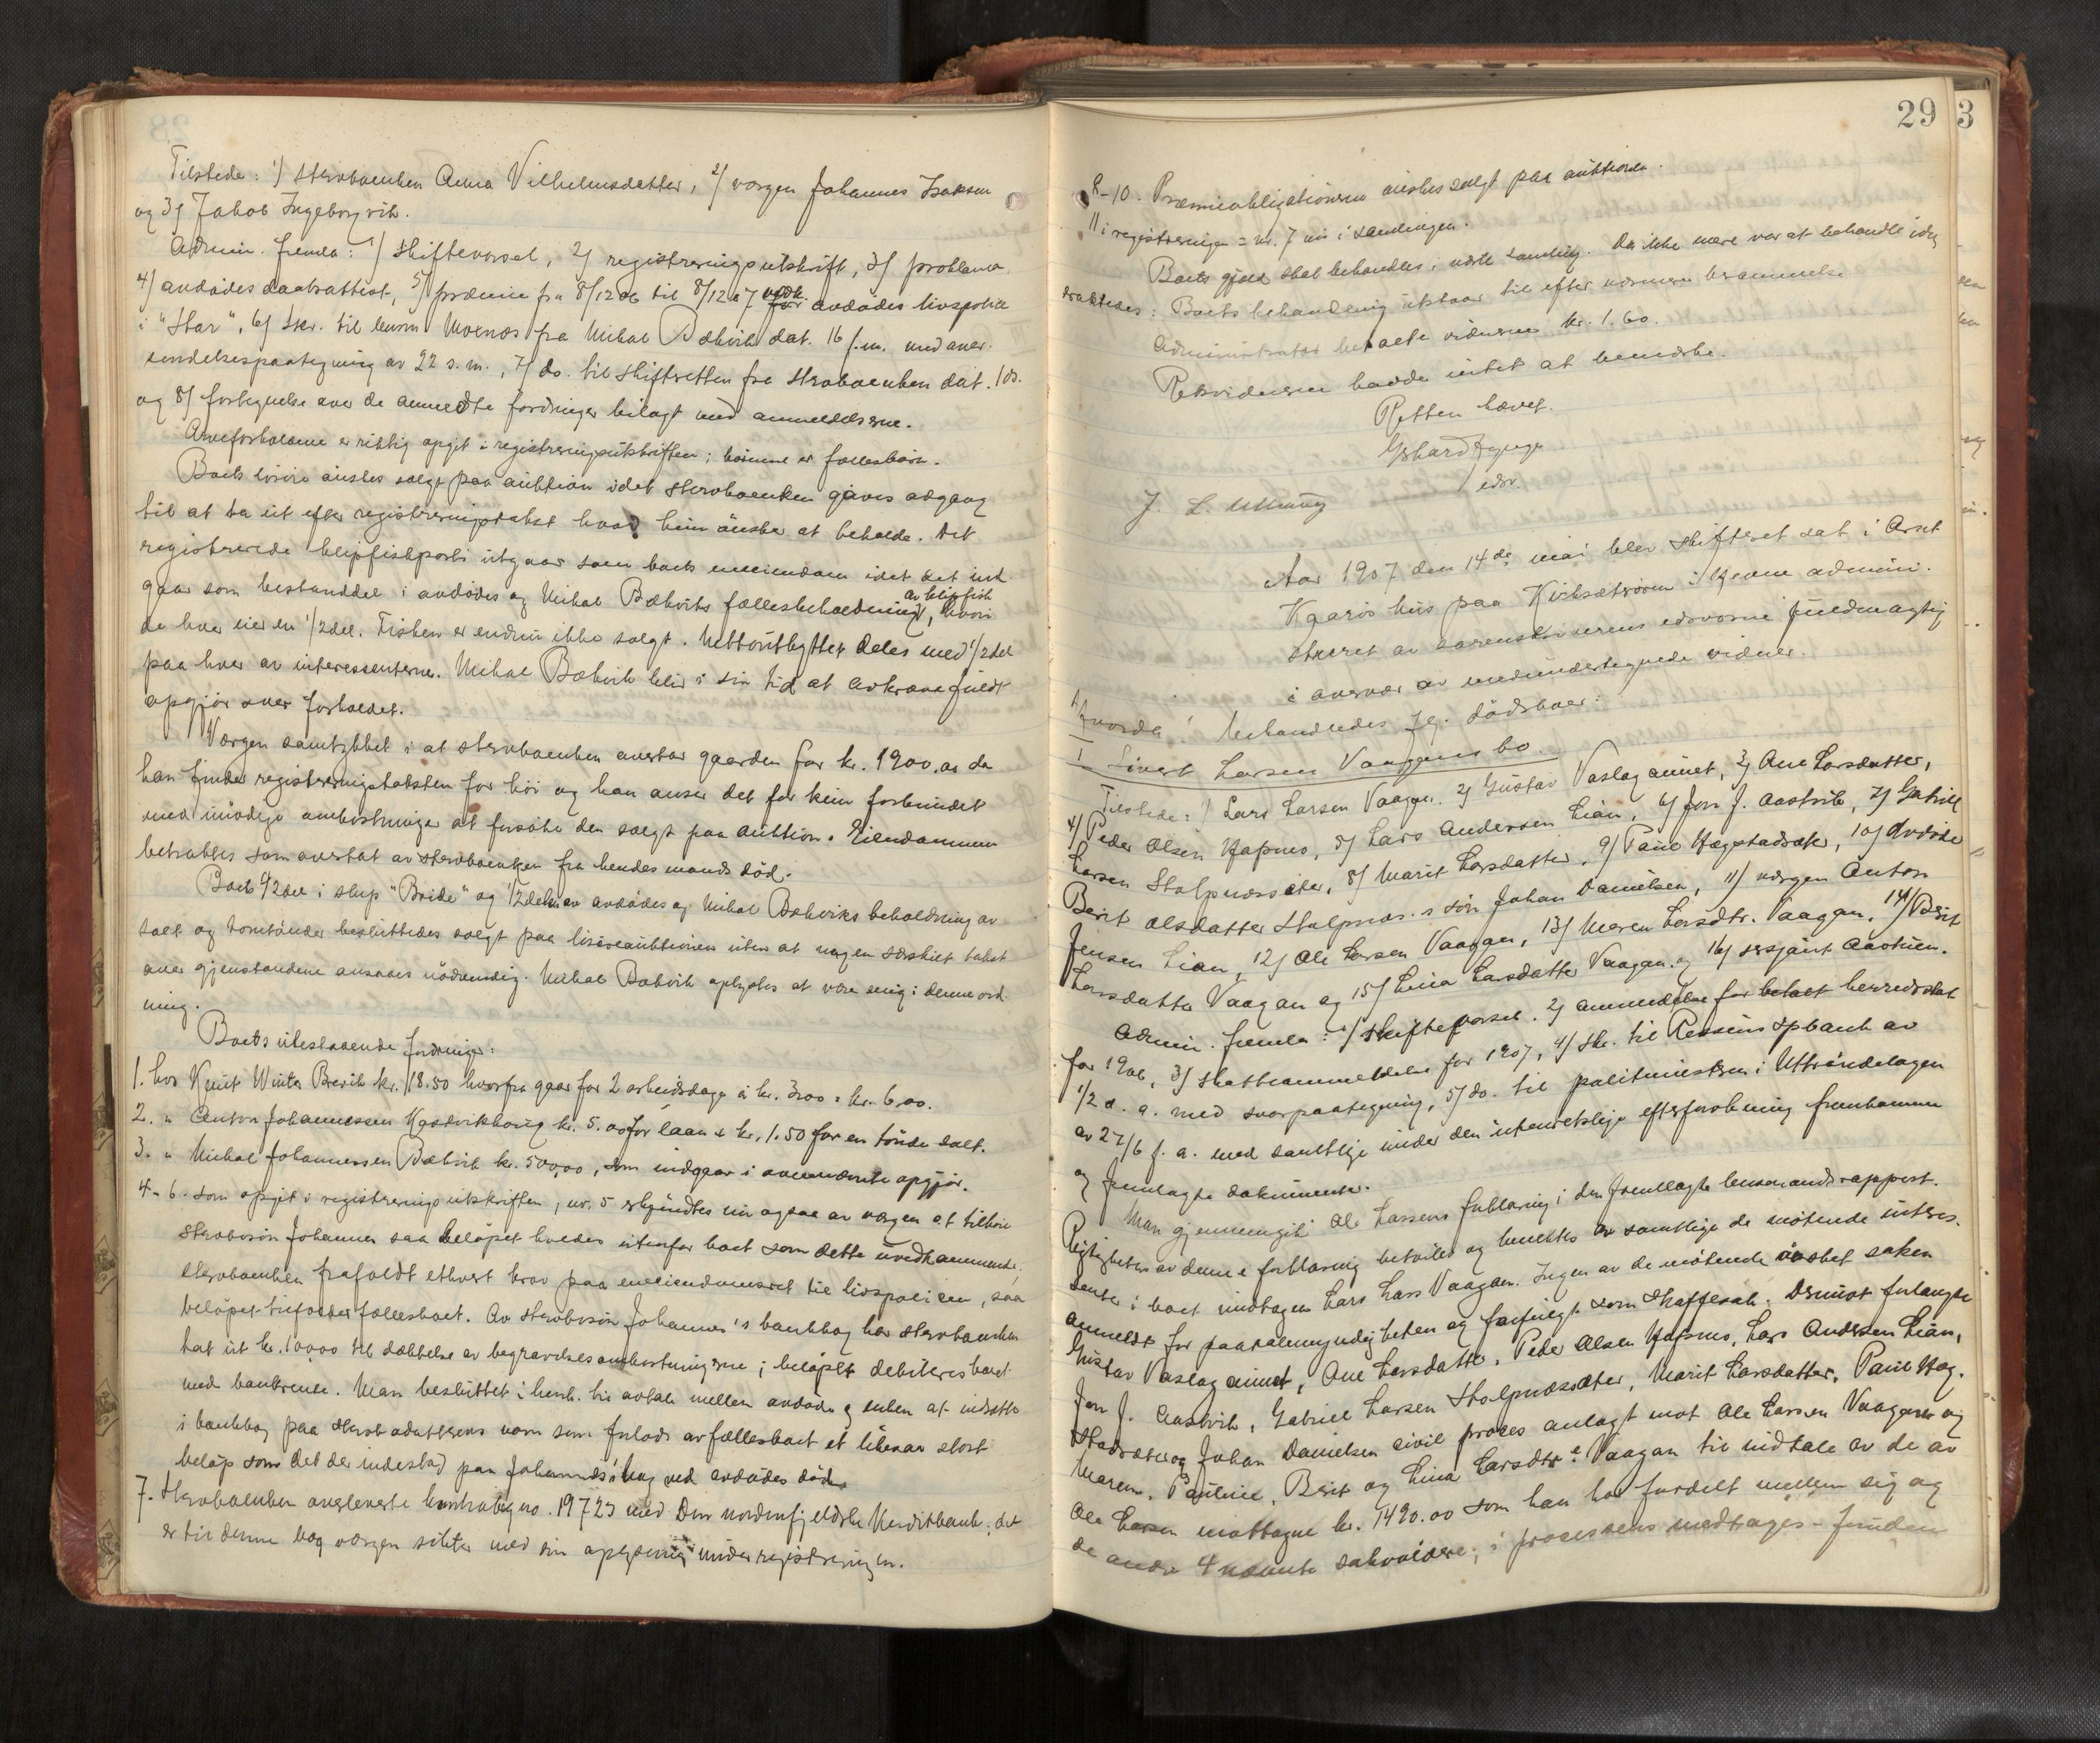 Tilstede: 1) Stervboenken Anna Vilhelmsdatter, 2) værgen Johannes Isaksen
og 3) Jakob Ingeborgvik.
Admin. fremla: 1) Skiftevarsel, 2) registreringsutskrift, 3) proklama
4) avdødes daabsattest, 5) præmie fra 8/12 06 til 8/12 07 vedk. avdødes livspolice
i "Star", 6) Skr. til lensm. Moenæs fra Mikal Bækvik dat. 16 f.m. med aner-
kjendelsespaategning av 22 s.m., 7) do. til skifteretten fra Stervboenken dat. 1 ds.
og 8) fortegnelse over de anmeldte fordringer bilagt med anmeldelserne.
Arveforholdene er riktig opgit i registreringsutskriften; børnene er fællesbørn.
Boets løsøre ønskes solgt paa auktion idet stervboenken gives adgang
til at ta ut efter registreringstakst hvad hun ønsker at beholde. Det
registrerede klipfiskparti utgaar som boets eneeiendom idet det ind-
gaar som bestanddel i avdødes og Mikal Bækviks fællesbeholdning av klipfisk, hvori
de hver eier en 1/2 del. Fisken er endnu ikke solgt. Nettoutbyttet deles med 1/2 del
paa hver av interessenterne. Mikal Bækvik blir i sin tid at avkræve fuldt
opgjør over forholdet.
Værgen samtykket i at stervboenken overtar gaarden for kr. 1900.00 da
han finder registreringstaksten for høi og han anser det for kun forbundet
med unødige omkostninger at forsøke den solgt paa auktion. Eiendommen
betraktes som overtat av stervboenken fra hendes mands død.
Boets 1/2 del i slup "Bride" og 1/2 delen av avdødes og Mikal Bækviks beholdning av
salt og tomtønder besluttedes solgt paa løsøreauktionen uten at nogen særskilt takst
over gjenstandene ansaaes nødvendig. Mikal Bækvik oplystes at være enig i denne ord-
ning.
Boets utestaaende fordringer:
1. hos Knut Winter Brevik kr. 18.50 hvorfra gaar for 2 arbeidsdage à kr. 3.00 = kr. 6.00.
2. " Anton Johannessen kr. 5.00 for laan & kr. 1.50 for en tønde salt.
3. " Mikal Johannessen Bækvik kr. 500,00, som indgaar i ovennævnte opgjør.
4-6. som opgit i registreringsutskriften; nr. 5 erkjendtes nu ogsaa av værgen at tilhøre
stervbosøn Johannes saa beløpet holdes utenfor boet som dette uvedkommende;
stervboenken frafaldt ethvert krav paa eneeiendomsret til livspolicen, saa
beløpet tilfalder fællesboet. Av stervbosøn Johannes's bankbog har stervboenken
tat ut kr. 100,00 til dækkelse av begravelsesomkostningerne; beløpet debiteres boet
med bankrente. Man besluttet i henh. til avtale mellem avdøde og enken at indsætte
i bankbog paa stervbodatterens navn som forlods av fællesboet et likesaa stort
beløp som det der indestod paa Johannes's bog ved avdødes død.
7. Stervboenken overleverte kontrabog no. 19723 med Den nordenfjeldske Kreditbank; det
er til denne bog værgen sikter med sin oplysning under registreringen.
29
3
8-10. Præmieobligationerne ønskes solgt paa auktionen.
11 i registreringen = nr. 7 nu i samlingen.
Boets gjæld skal behandles i næste samling. Da ikke mere var at behandle idag
: Boets behandling utstaar til efter nærmere berammelse
Administrator betalte vidnerne kr. 1.60.
Rekvirenten hadde intet at bemerke.
Retten hævet.
edsv.
Aar 1907 den 14de mai blev skifteret sat i Arnt
Kaarøs hus paa Kirksæterøren i Hevne admini-
streret av sorenskriverens edsvorne fuldmægtig
i overvær av medundertegnede vidner.
Hvorda! behandledes flg. dødsboer:
I Sivert Larsen Vaagans bo.
Tilstede: 1) Lars Larsen Vaagan, 2) Gustav Vaslag aunet, 3) Ane Larsdatter,
4) Peder Olsen Hafsmo, 5) Lars Andersen Lian, 6) Jon J. Aastvik, 7) Gabriel
Larsen Stolpnessæter, 8) Marit Larsdatter, 9) Paul Hægstadsæter, 10) Avdøde
Berit Olsdatter Stolpnes's søn Johan Danielsen, 11) værgen Anton
Jensen Lian, 12) Ole Larsen Vaagan, 13) Maren Larsdtr. Vaagan, 14) Berit
Larsdatter Vaagan og 15) Lina Larsdatter Vaagan og 16) sersjant Aastuen.
Admin. fremla: 1) Skiftevarsel. 2) anmeldelse for herredsskat
for 1906, 3) skatteanmeldelse for 1907, 4) skr. til Ressens Spbank av
1/2 d. a. med svarpaategning, 5) do. til politimesteren i Uttrøndelagen
av 27/6 f. a. med samtlige under den utenretslige efterforskning fremkomne
og fremlagte dokumenter.
Man gjennemgik Ole Larsens forklaring i den fremlagte lensmandsrapport.
Rigtigheten av denne forklaring betviles og benektes av samtlige de møtende interes-
senter i boet undtagen Lars Lars Vaagan. Ingen av de møtende ønsket saken
anmeldt for paatalemyndigheten og forfulgt som straffesak. Derimot forlangte
Gustav Vaslag aunet, Ane Larsdatter, Peder Olsen Hafsmo, Lars Andersen Lian,
Jon J. Aastvik, Gabriel Larsen Stolpnessæter, Marit Larsdatter, Paul Hæg-
stadsæter og Johan Danielsen civil proces anlagt mot Ole Larsen Vaagan og
Maren, Pauline, Berit og Lina Larsdtr.e Vaagan til indtale av de av
Ole Larsen mottagne kr. 1490.00 som han har fordelt mellem sig og
de andre 4 nævnte saksøkte; i processens medtages